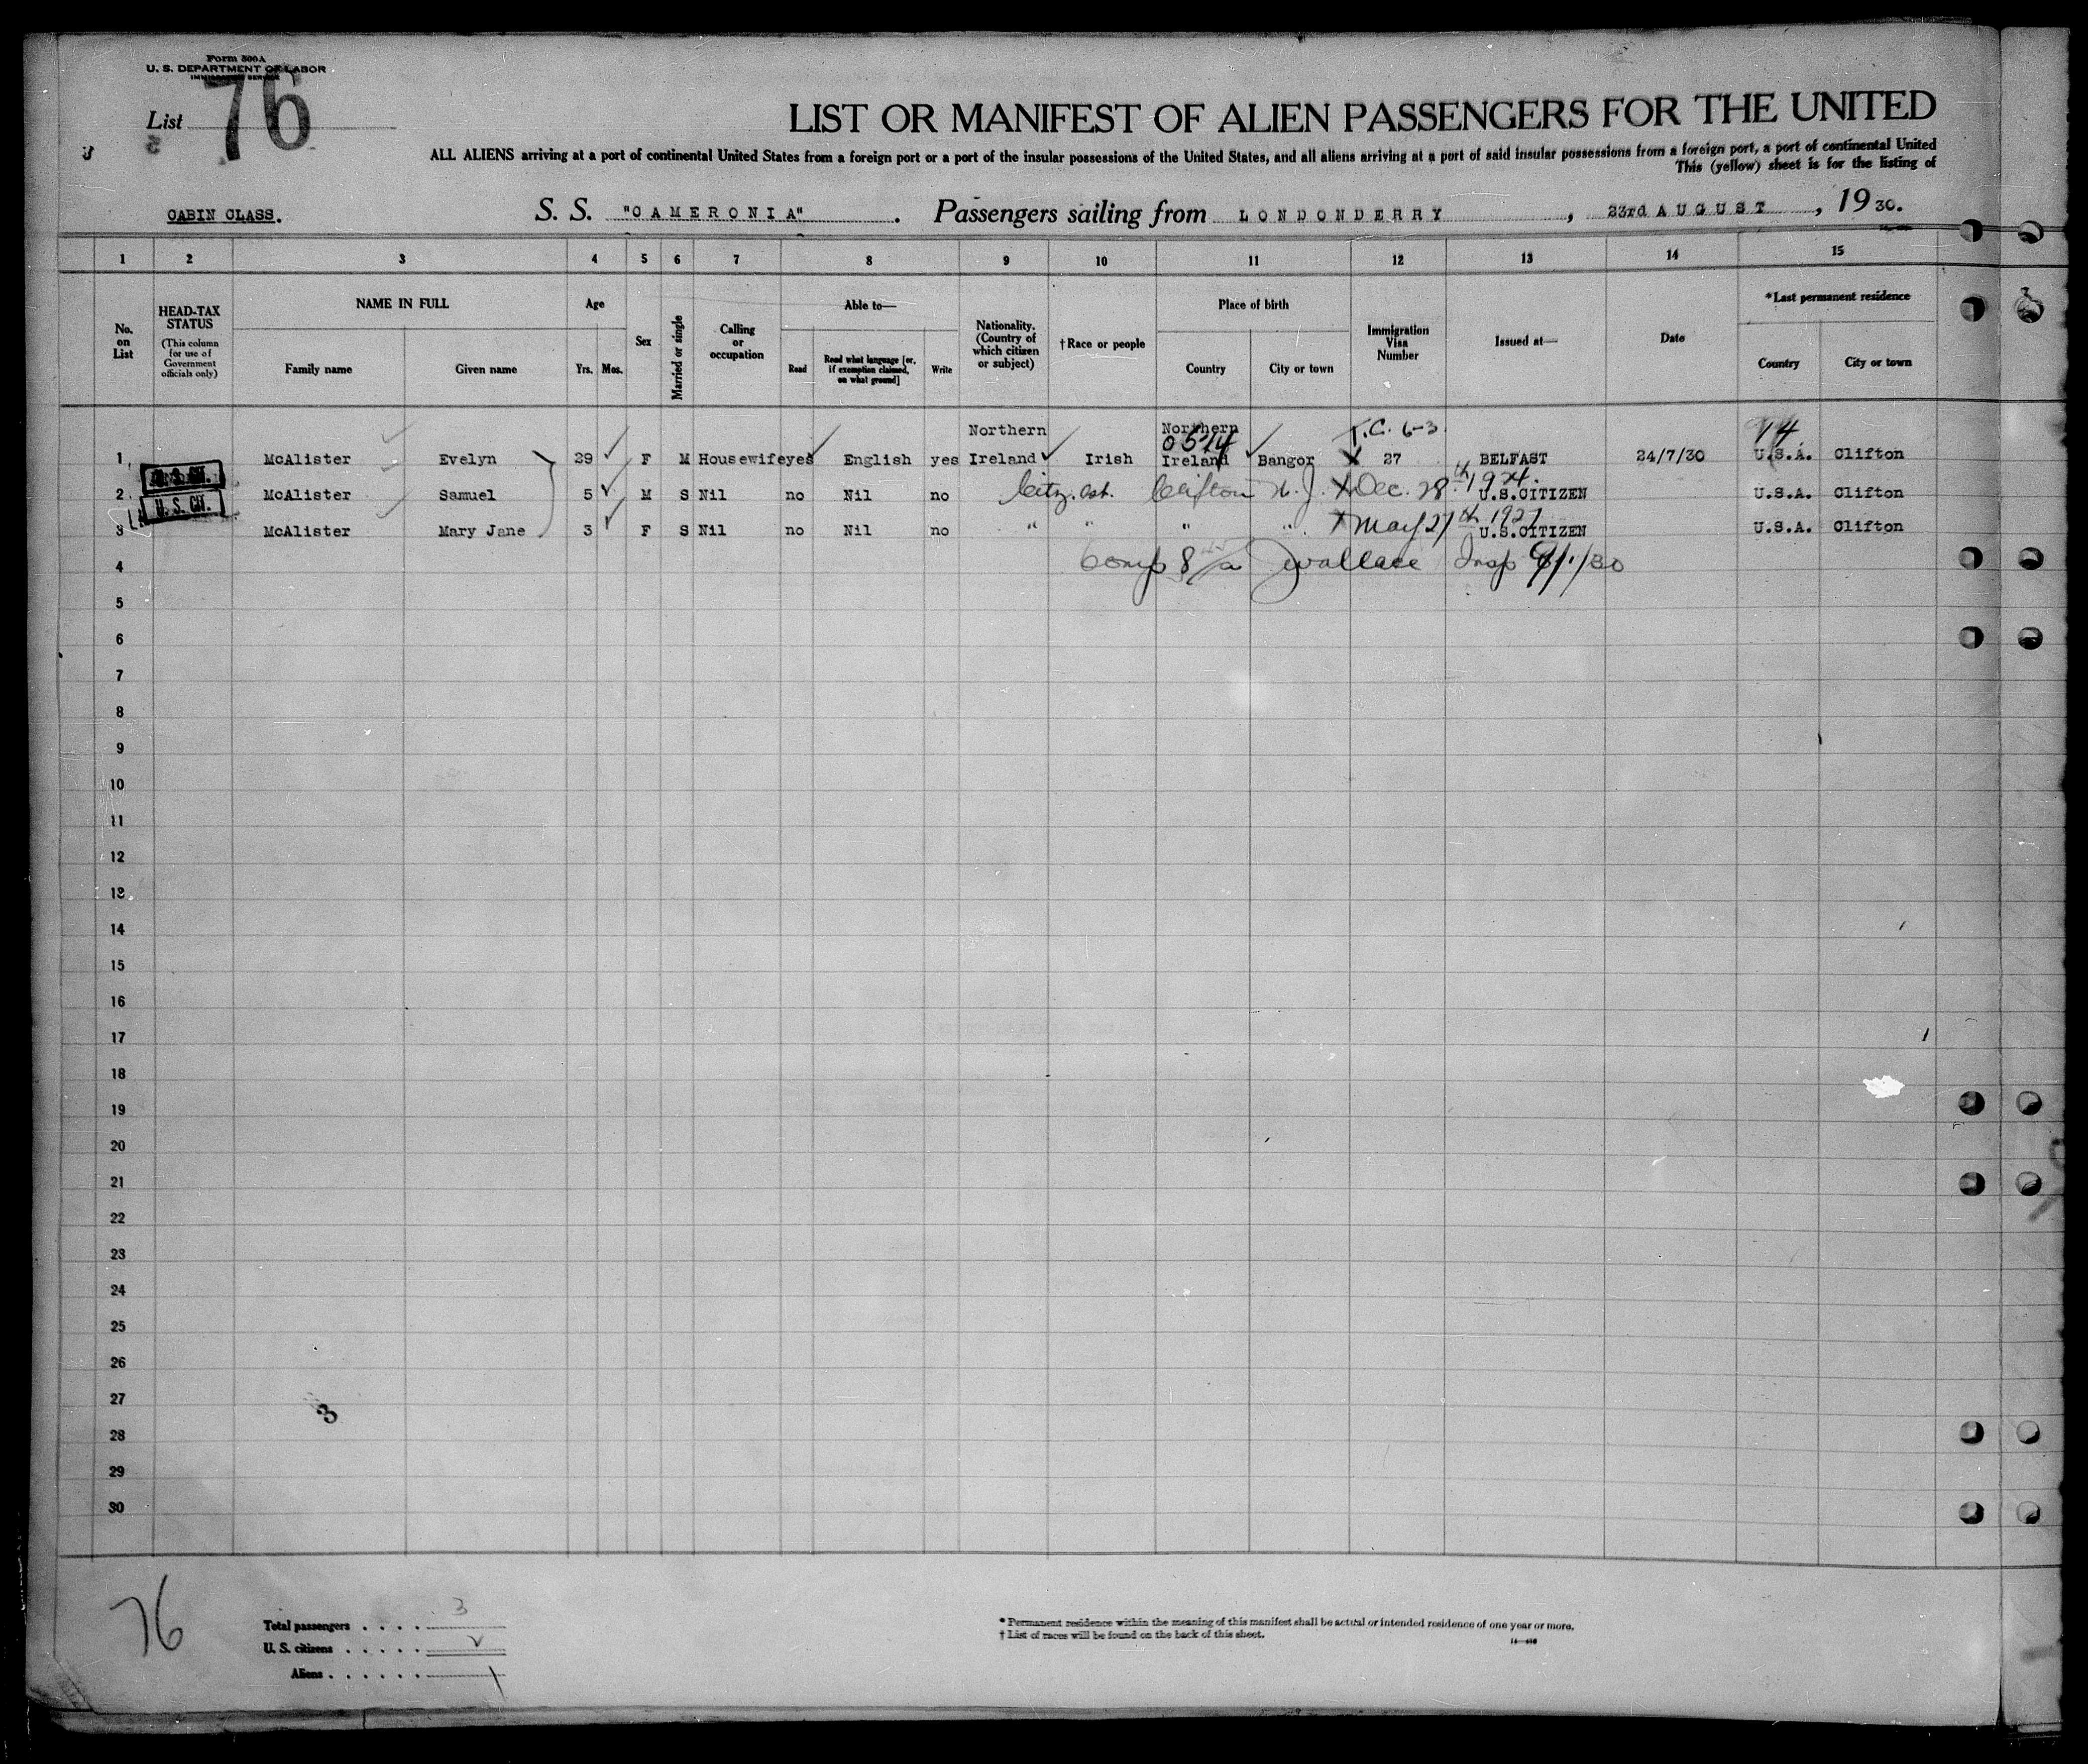 Form 500A
U. S. DEPARTMENT OF LABOR
IMMIGRATION SERVICE
List 76
LIST OR MANIFEST OF ALIEN PASSENGERS FOR THE UNITED
ALL ALIENS arriving at a port of continental United States from a foreign port or a port of the insular possessions of the United States, and all aliens arriving at a port of said insular possessions from a foreign port, a port of continental United
This (yellow) sheet is for the listing of
CABIN CLASS. S. S. "CAMERONIA". Passengers sailing from LONDONDERRY, 23rd AUGUST, 1930.
1 2 3 4 5 6 7 8 9 10 11 12 13 14 15
No. on List
HEAD-TAX STATUS (This column for use of Government officials only)
NAME IN FULL
Family name Given name
Age
Yrs. Mos.
Sex
Married or single
Calling or occupation
Able to—
Read Read what language [or, if exemption claimed, on what ground] Write
Nationality. (Country of which citizen or subject)
†Race or people
Place of birth
Country City or town
Immigration Visa Number
Issued at—
Date
*Last permanent residence
Country City or town
Northern Northern T.C. 6-3 14
0514
1 McAlister Evelyn 29 F M Housewife yes English yes Ireland Irish Ireland Bangor X 27 BELFAST 24/7/30 U.S.A. Clifton
2 U. S. CIT. McAlister Samuel 5 M S Nil no Nil no Citz. Clifton N. J. X Dec. 28th 1924. U.S.CITIZEN U.S.A. Clifton
3 McAlister Mary Jane 3 F S Nil no Nil no " " " " X May 27th 1927 U.S.CITIZEN U.S.A. Clifton
4 Comp 8 Wallace Insp 9/1/30
5
6
7
8
9
10
11
12
13
14
15
16
17
18
19
20
21
22
23
24
25
26
27
3
28
29
30
76
Total passengers . . . . 3
U. S. citizens . . . . . 2
Aliens . . . . . . 1
* Permanent residence within the meaning of this manifest shall be actual or intended residence of one year or more.
† List of races will be found on the back of this sheet.